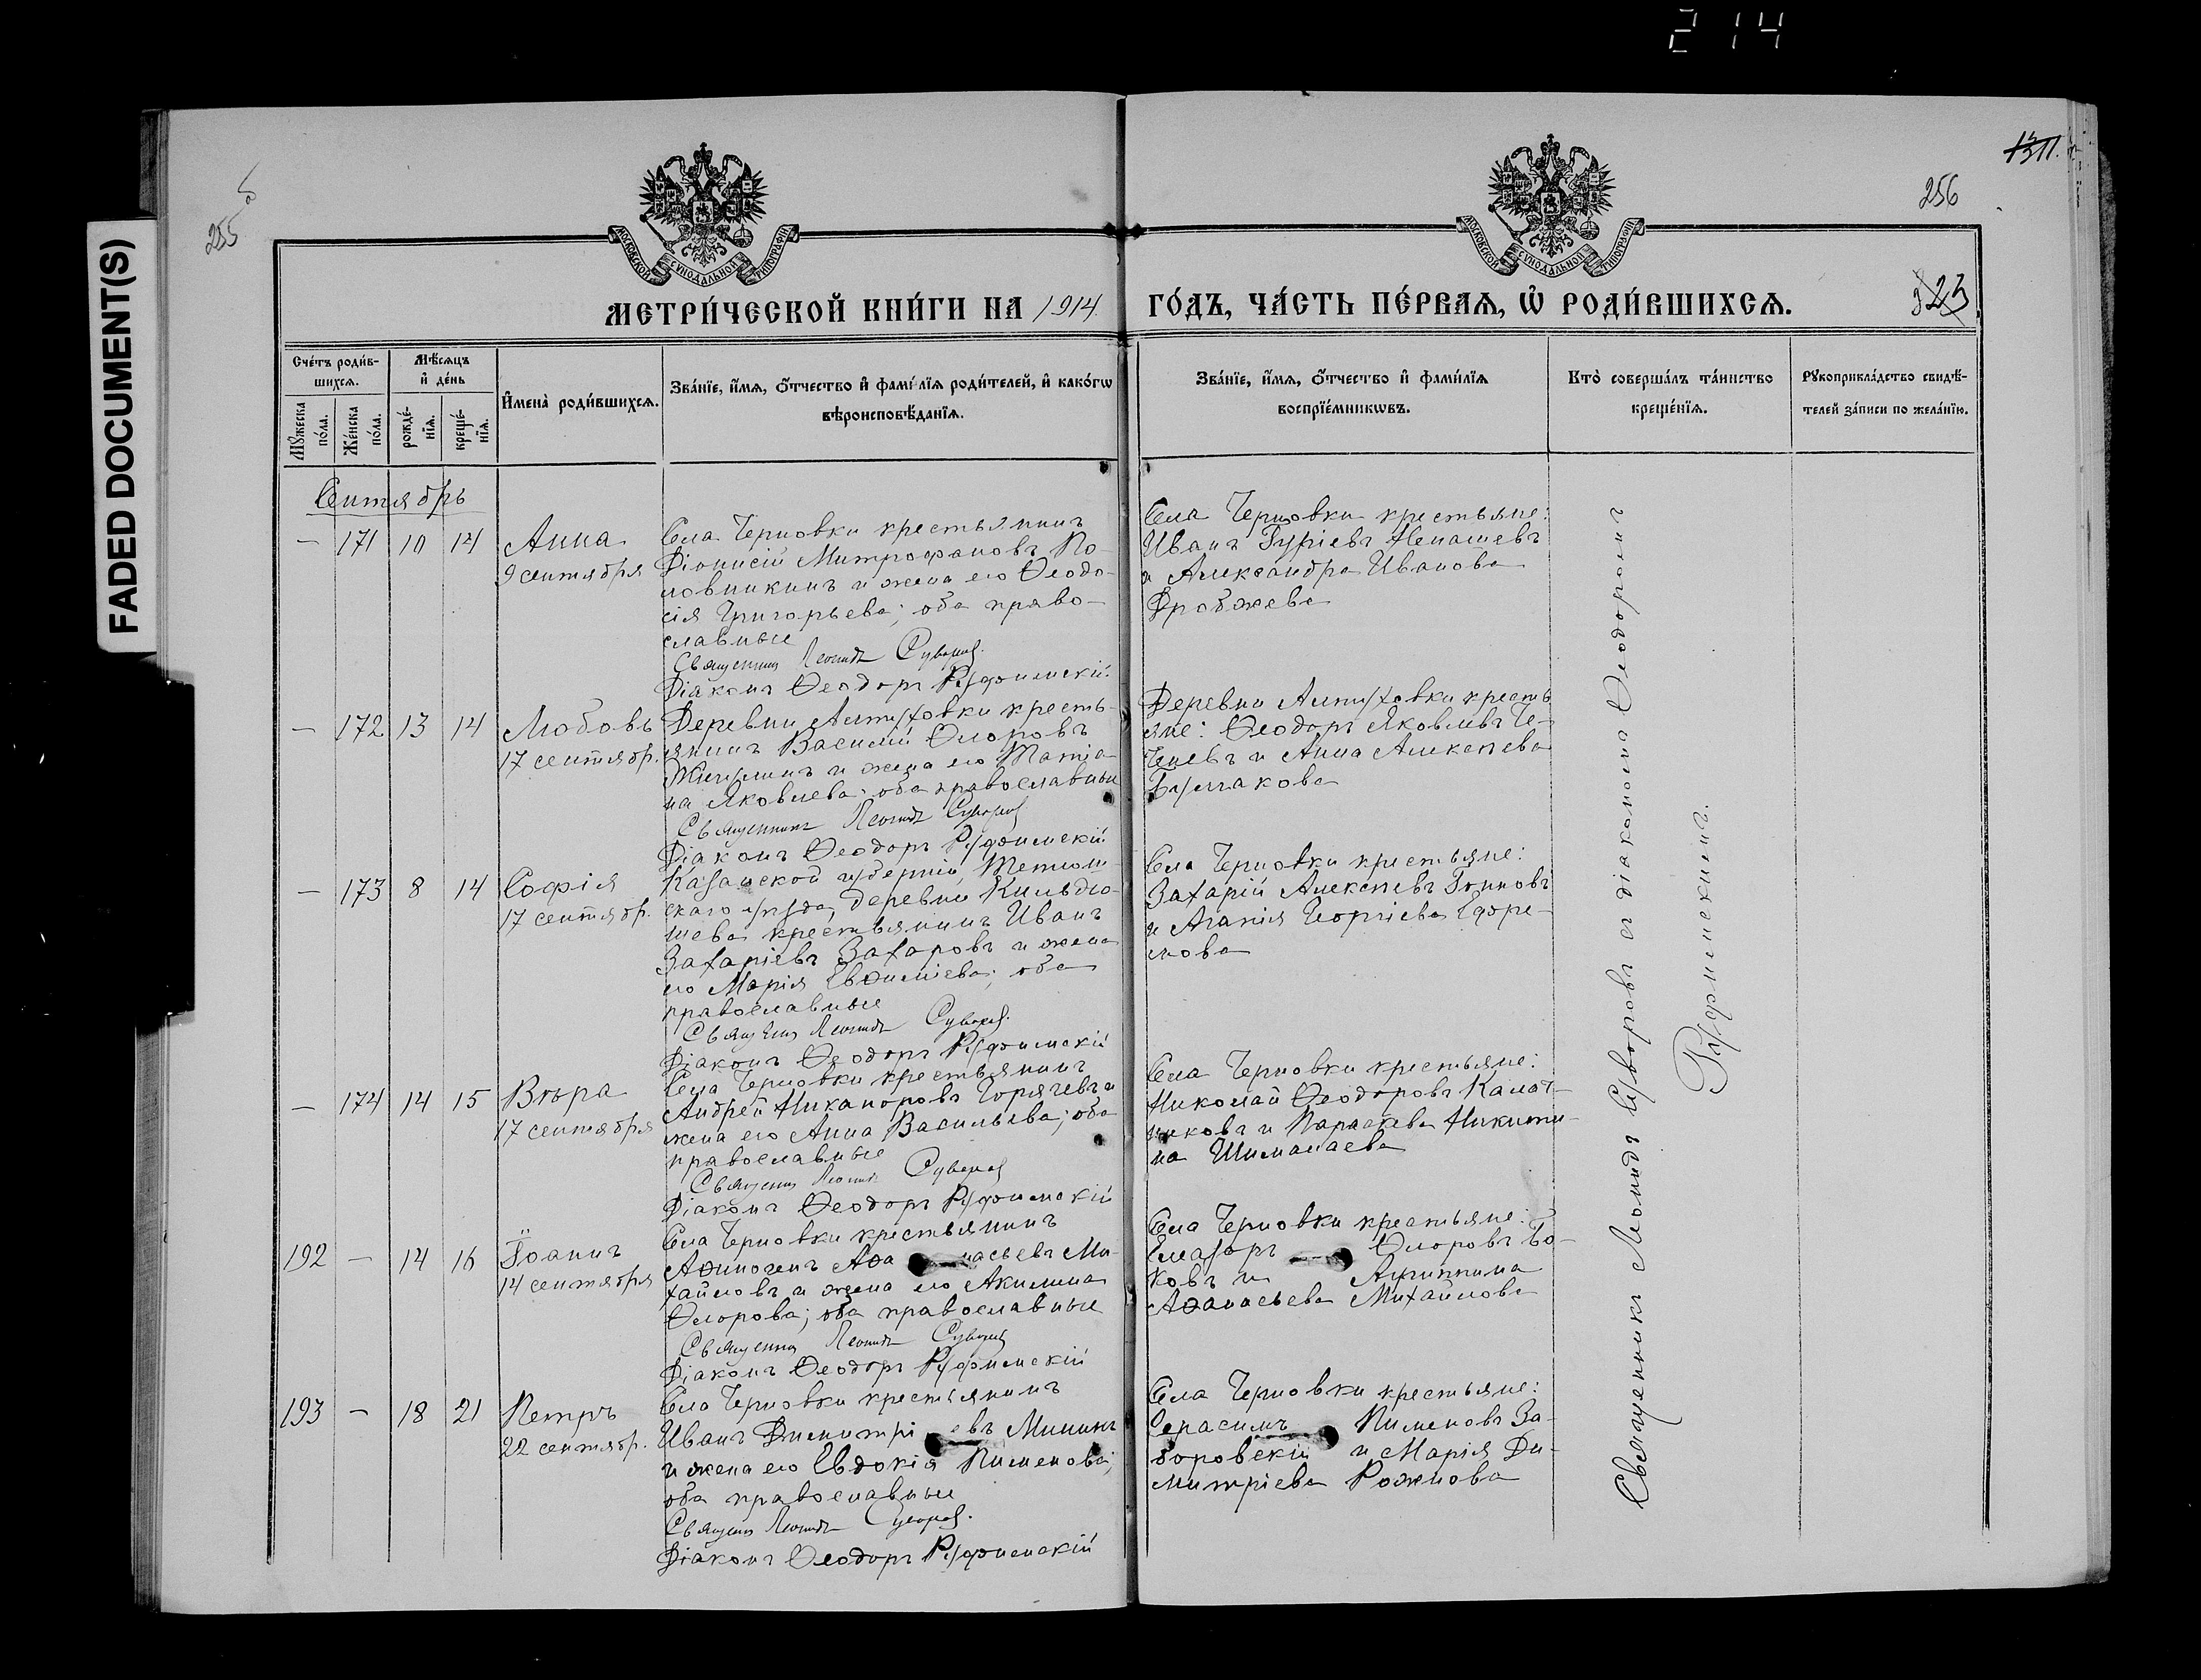 214
FADED DOCUMENT(S)
255
256
МОСКОВСКОЙ СУНОДАЛЬНОЙ ТИПОГРАФІИ
МОСКОВСКОЙ СУНОДАЛЬНОЙ ТИПОГРАФІИ
МЕТРИ́ЧЕСКОЙ КНИ́ГИ НА 1914
ГО́ДЪ, ЧА́СТЬ ПЕ́РВАѦ, Ѽ РОДИ́ВШИХСѦ.
323
Сче́тъ роди́в-
шихсѧ.
Мꙋжеска
по́ла.
Же́нска
по́ла.
Мѣ́сѧцъ
и҆ де́нь
рожде́-
нїѧ.
креще́-
нїѧ.
И҆мена̀ роди́вшихсѧ.
Зва́нїе, и҆́мѧ, ѻ҆́тчество и҆ фами́лїѧ роди́телей, и҆ како́гѡ
вѣроисповѣ́данїѧ.
Зва́нїе, и҆́мѧ, ѻ҆́тчество и҆ фами́лїѧ
воспрїе́мникѡвъ.
Кто̀ соверша́лъ та́инство
креще́нїѧ.
Рꙋкоприкла́дство свидѣ́-
телей за́писи по жела́нїю.
Сентябрь
— 171 10 14 Анна
9 сентября
Села Черновки крестьянинъ
Діонисій Митрофановъ По-
ловникинъ и жена его Ѳеодо-
сія Григорьева; оба право-
славные
Священникъ Леонидъ Суворовъ.
Діаконъ Ѳеодоръ Руфимскій
Села Черновки крестьяне:
Иванъ Гуріевъ Ненашевъ
и Александра Иванова
Дробжева
— 172 13 14 Любовь
17 сентябр.
Деревни Алтуховки кресть-
янинъ Василій Ѳлоровъ
и жена его Татіа-
на Яковлева; оба православные
Священникъ Леонидъ Суворовъ
Діаконъ Ѳеодоръ Руфимскій
Деревни Алтуховки кресть
яне: Ѳеодоръ Яковлевъ Че-
и Анна Алексѣева
Бурлакова
— 173 8 14 Софія
17 сентябр.
Казанской губерніи, Тетюш-
скаго уѣзда, деревни Кильдю-
шева крестьянинъ Иванъ
Захаріевъ Захаровъ и жена
его Марія Евѳиміева; оба
православные
Священникъ Леонидъ Суворовъ.
Діаконъ Ѳеодоръ Руфимскій
Села Черновки крестьяне:
Захарій Алексѣевъ
и Агапія Георгіева Ефре-
мова
— 174 14 15 Вѣра
17 сентября
Села Черновки крестьянинъ
Андрей Никаноровъ Горячевъ и
жена его Анна Васильева; оба
православные
Священникъ Леонидъ Суворовъ
Діаконъ Ѳеодоръ Руфимскій
Села Черновки крестьяне:
Николай Ѳеодоровъ Калач-
никовъ и Параскева Никити-
на Шиманаева
192 — 14 16 Іоаннъ
14 сентября
Села Черновки крестьянинъ
Аѳиногенъ Аѳанасьевъ Ми-
хайловъ и жена его Акилина
Ѳлорова; оба православные
Священникъ Леонидъ Суворовъ
Діаконъ Ѳеодоръ Руфимскій
Села Черновки крестьяне:
Елеазоръ Ѳлоровъ Бо-
ковъ и Агриппина
Аѳанасьева Михайлова
193 — 18 21 Петръ
22 сентябр.
Села Черновки крестьянинъ
Иванъ Димитріевъ Мининъ
и жена его Евдокія Пименова;
оба православные
Священникъ Леонидъ Суворовъ.
Діаконъ Ѳеодоръ Руфимскій
Села Черновки крестьяне:
Герасимъ Пименовъ За-
боровскій и Марія Ди-
митріева Рожнова
Священникъ Леонидъ Суворовъ съ діакономъ Ѳеодоромъ
Руфимскимъ.